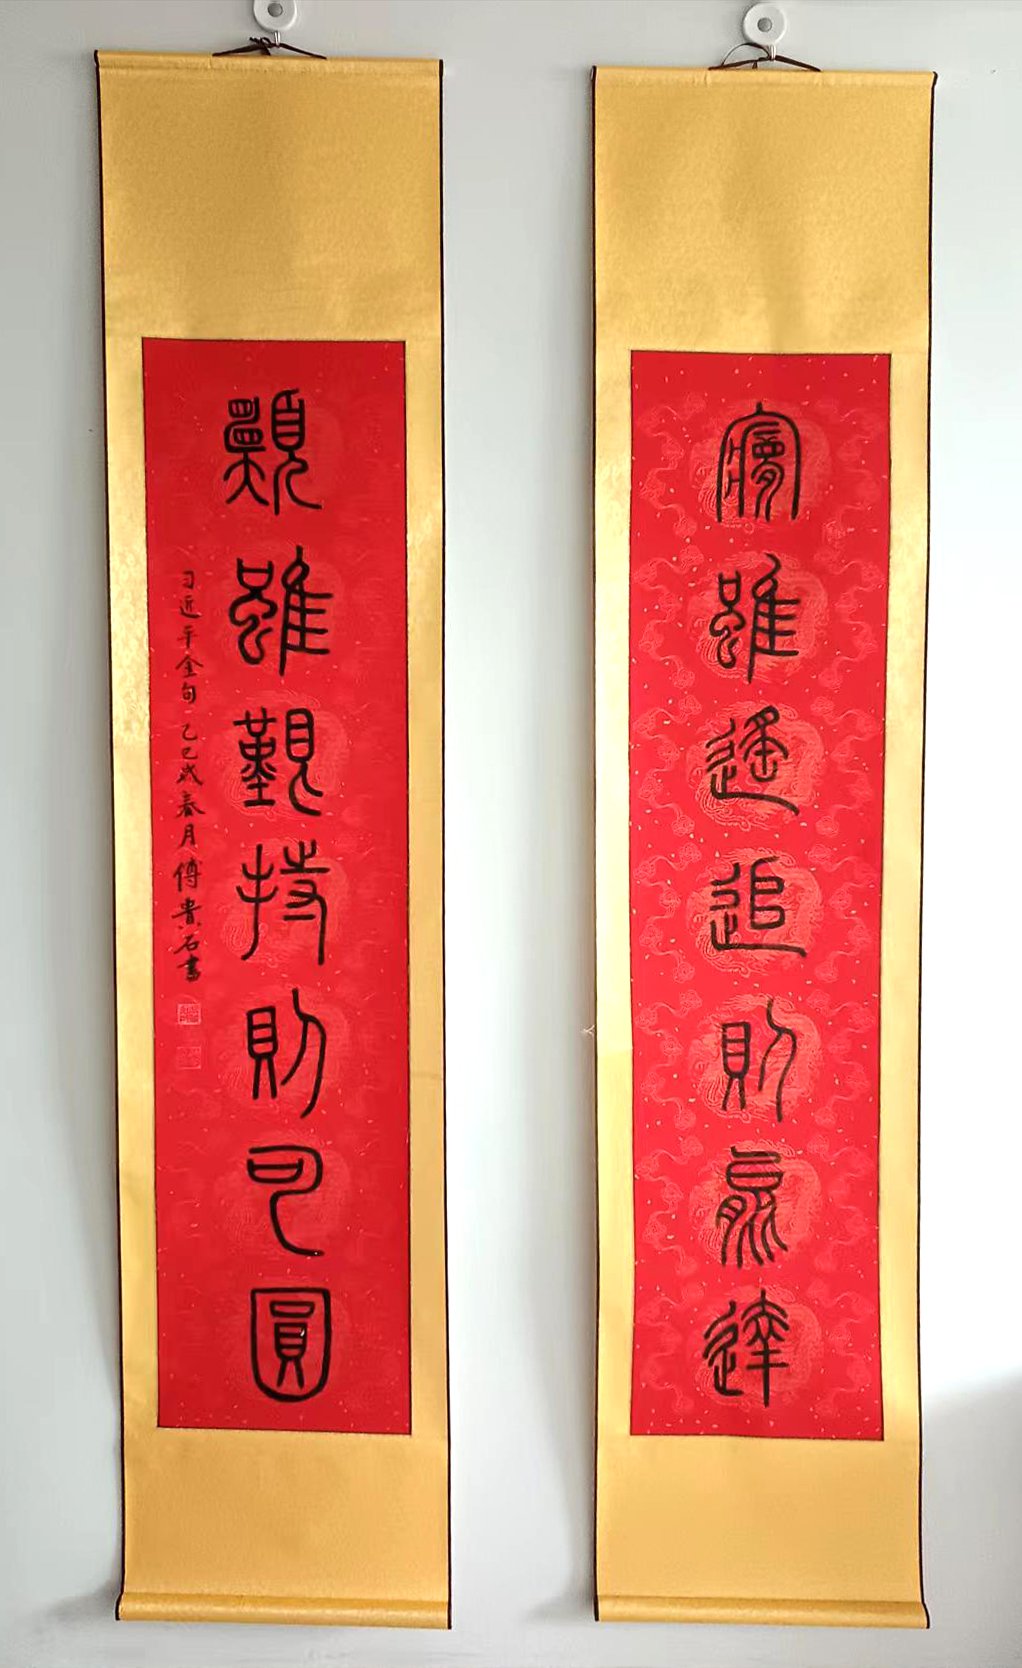 夢雖遙追則能達
願雖艱持則可圓
习近平金句 乙巳岁春月傅貴石書